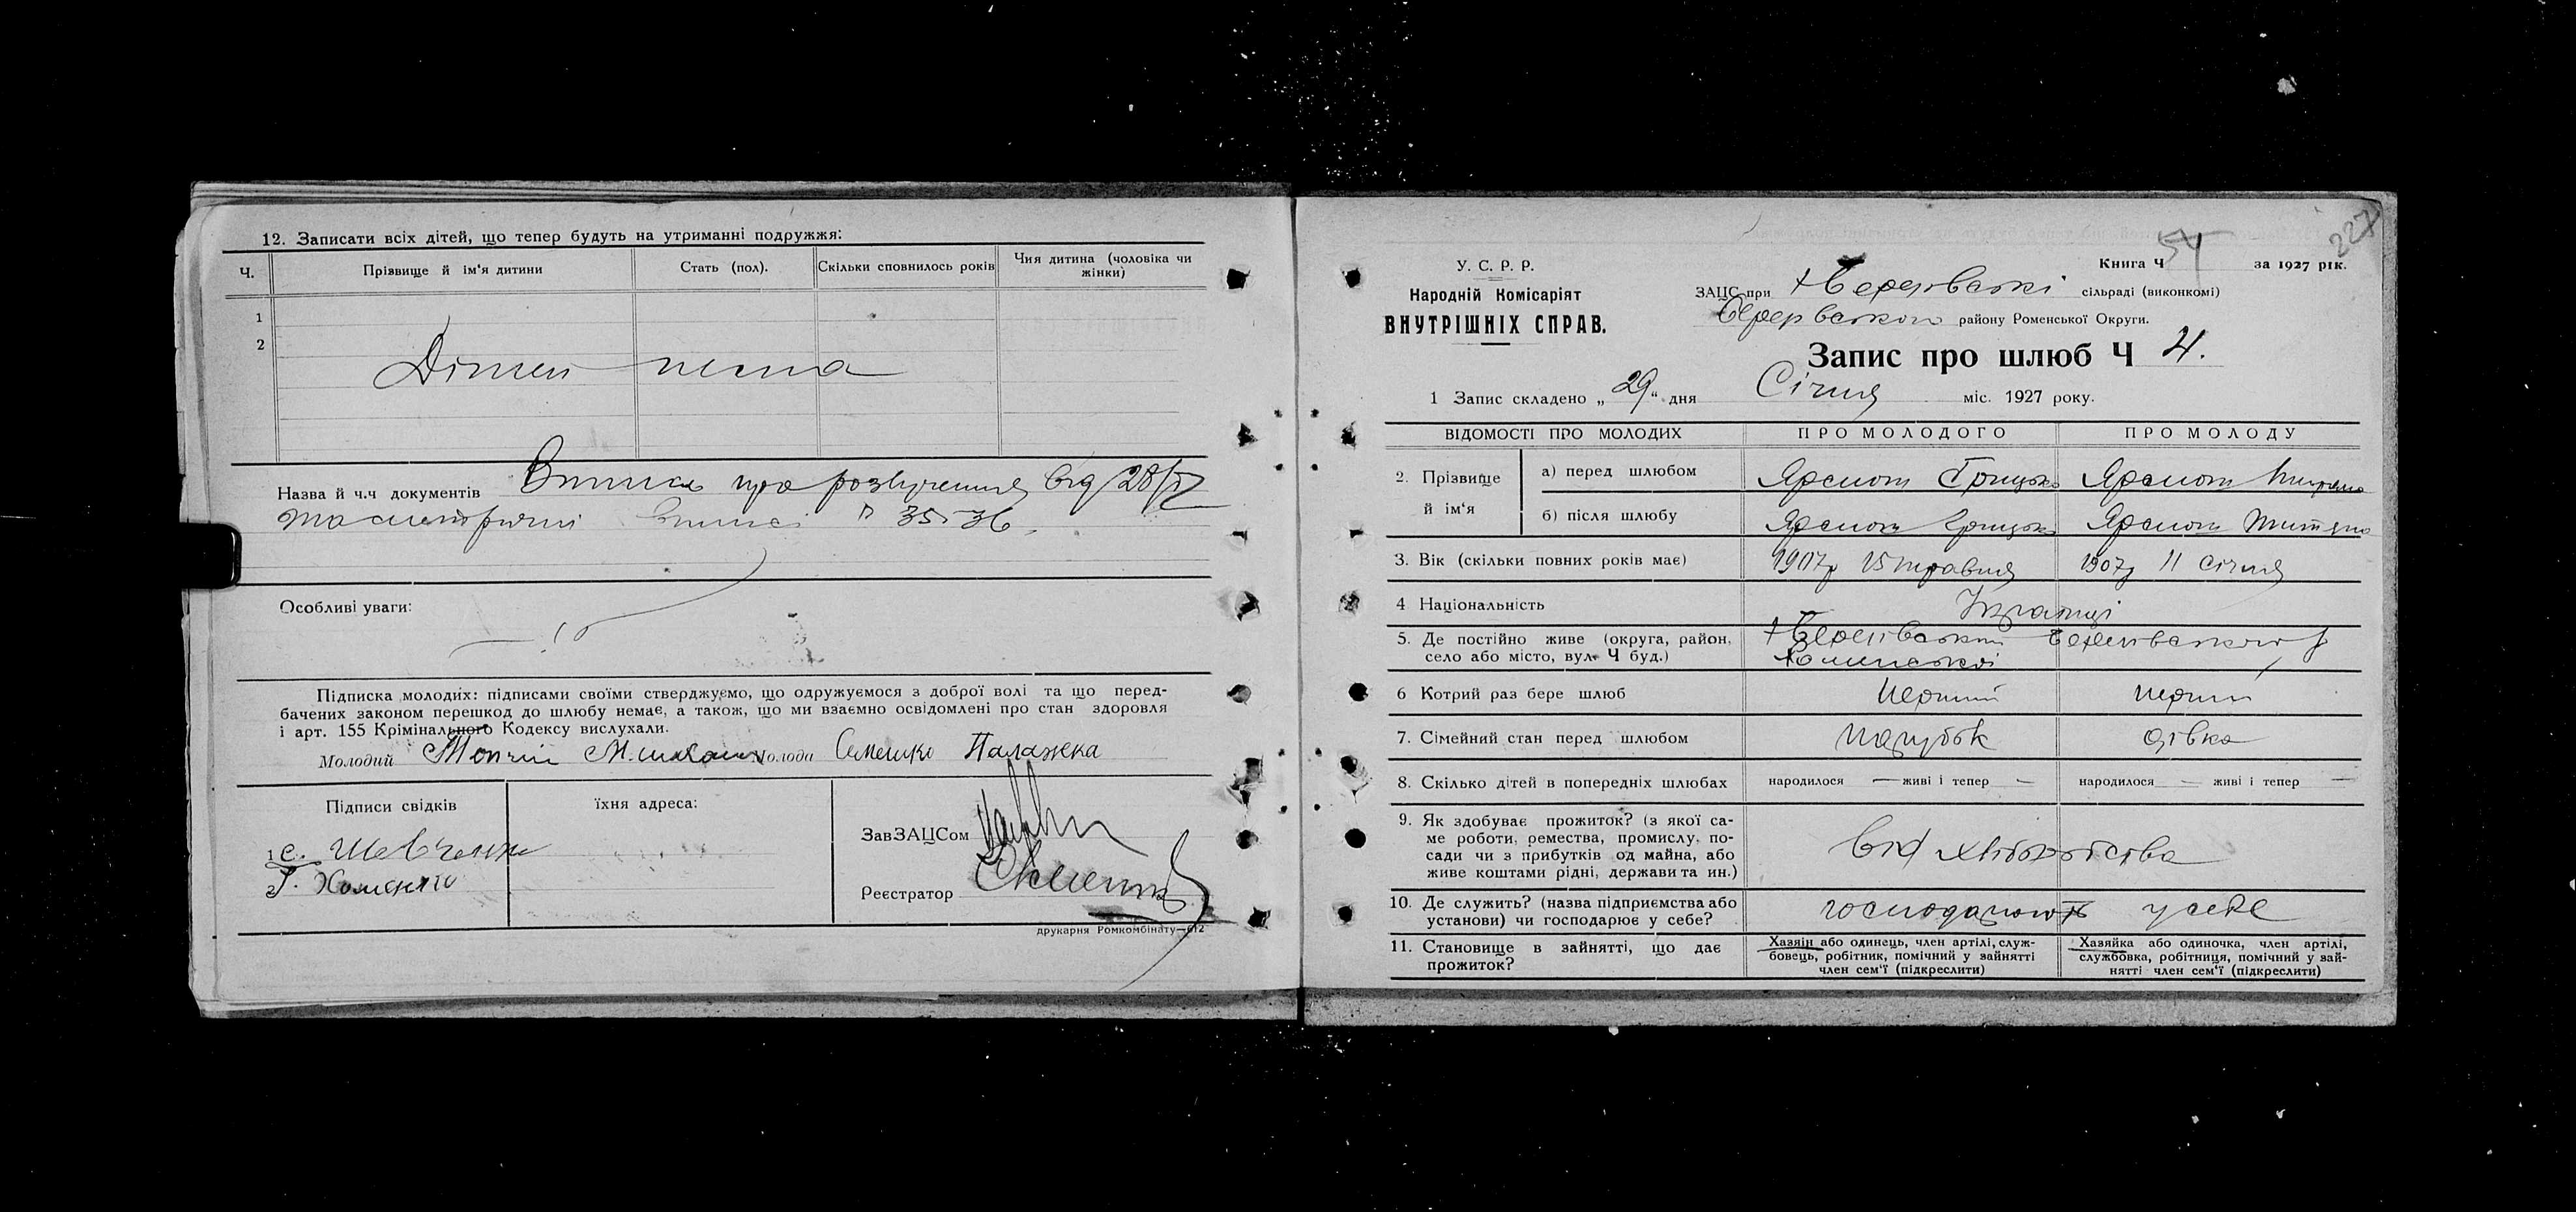 12. Записати всіх дітей, що тепер будуть на утриманні подружжя:
Ч. Прізвище й ім'я дитини Стать (пол). Скільки сповнилось років Чия дитина (чоловіка чи жінки)
1
2
Дітей нема
Назва й ч.ч документів Виписка про розлучення від
та виписі 35 і 36.
Особливі уваги:
Підписка молодих: підписами своїми стверджуємо, що одружуємося з доброї волі та що перед-
бачених законом перешкод до шлюбу немає, а також, що ми взаємно освідомлені про стан здоровля
і арт. 155 Крімінального Кодексу вислухали.
Молодий Молода Семешко Палажка
Підписи свідків їхня адреса:
ЗавЗАЦСом
1 С. Шевченко
2 Г. Хоменко
Реєстратор
друкарня Ромкомбінату—612
227
54
У. С. Р. Р.
Народній Комісаріят
ВНУТРІШНІХ СПРАВ.
Книга Ч за 1927 рік.
ЗАЦС при сільраді (виконкомі)
району Роменської Округи.
Запис про шлюб Ч 4.
1 Запис складено „29" дня Січня міс. 1927 року.
ВІДОМОСТІ ПРО МОЛОДИХ ПРО МОЛОДОГО ПРО МОЛОДУ
2. Прізвище й ім'я
а) перед шлюбом Ярмош Грицько Ярмош
б) після шлюбу Ярмош Грицько Ярмош
3. Вік (скільки повних років має) 1907р 15 травня 1907р 11 січня
4 Національність Українці
5. Де постійно живе (округа, район,
село або місто, вул. Ч буд.)
6 Котрий раз бере шлюб Перший Перший
7. Сімейний стан перед шлюбом Парубок дівка
8. Скілько дітей в попередніх шлюбах народилося — живі і тепер — народилося — живі і тепер —
9. Як здобуває прожиток? (з якої са-
ме роботи, ремества, промислу, по-
сади чи з прибутків од майна, або
живе коштами рідні, держави та ин.)
від хліборобства
10. Де служить? (назва підприємства або
установи) чи господарює у себе?
господарюють у себе
11. Становище в зайнятті, що дає
прожиток?
Хазяін або одинець, член артілі, служ-
бовець, робітник, помічний у зайнятті
член сем'ї (підкреслити)
Хазяйка або одиночка, член артілі,
службовка, робітниця, помічний у зай-
нятті член сем'ї (підкреслити)